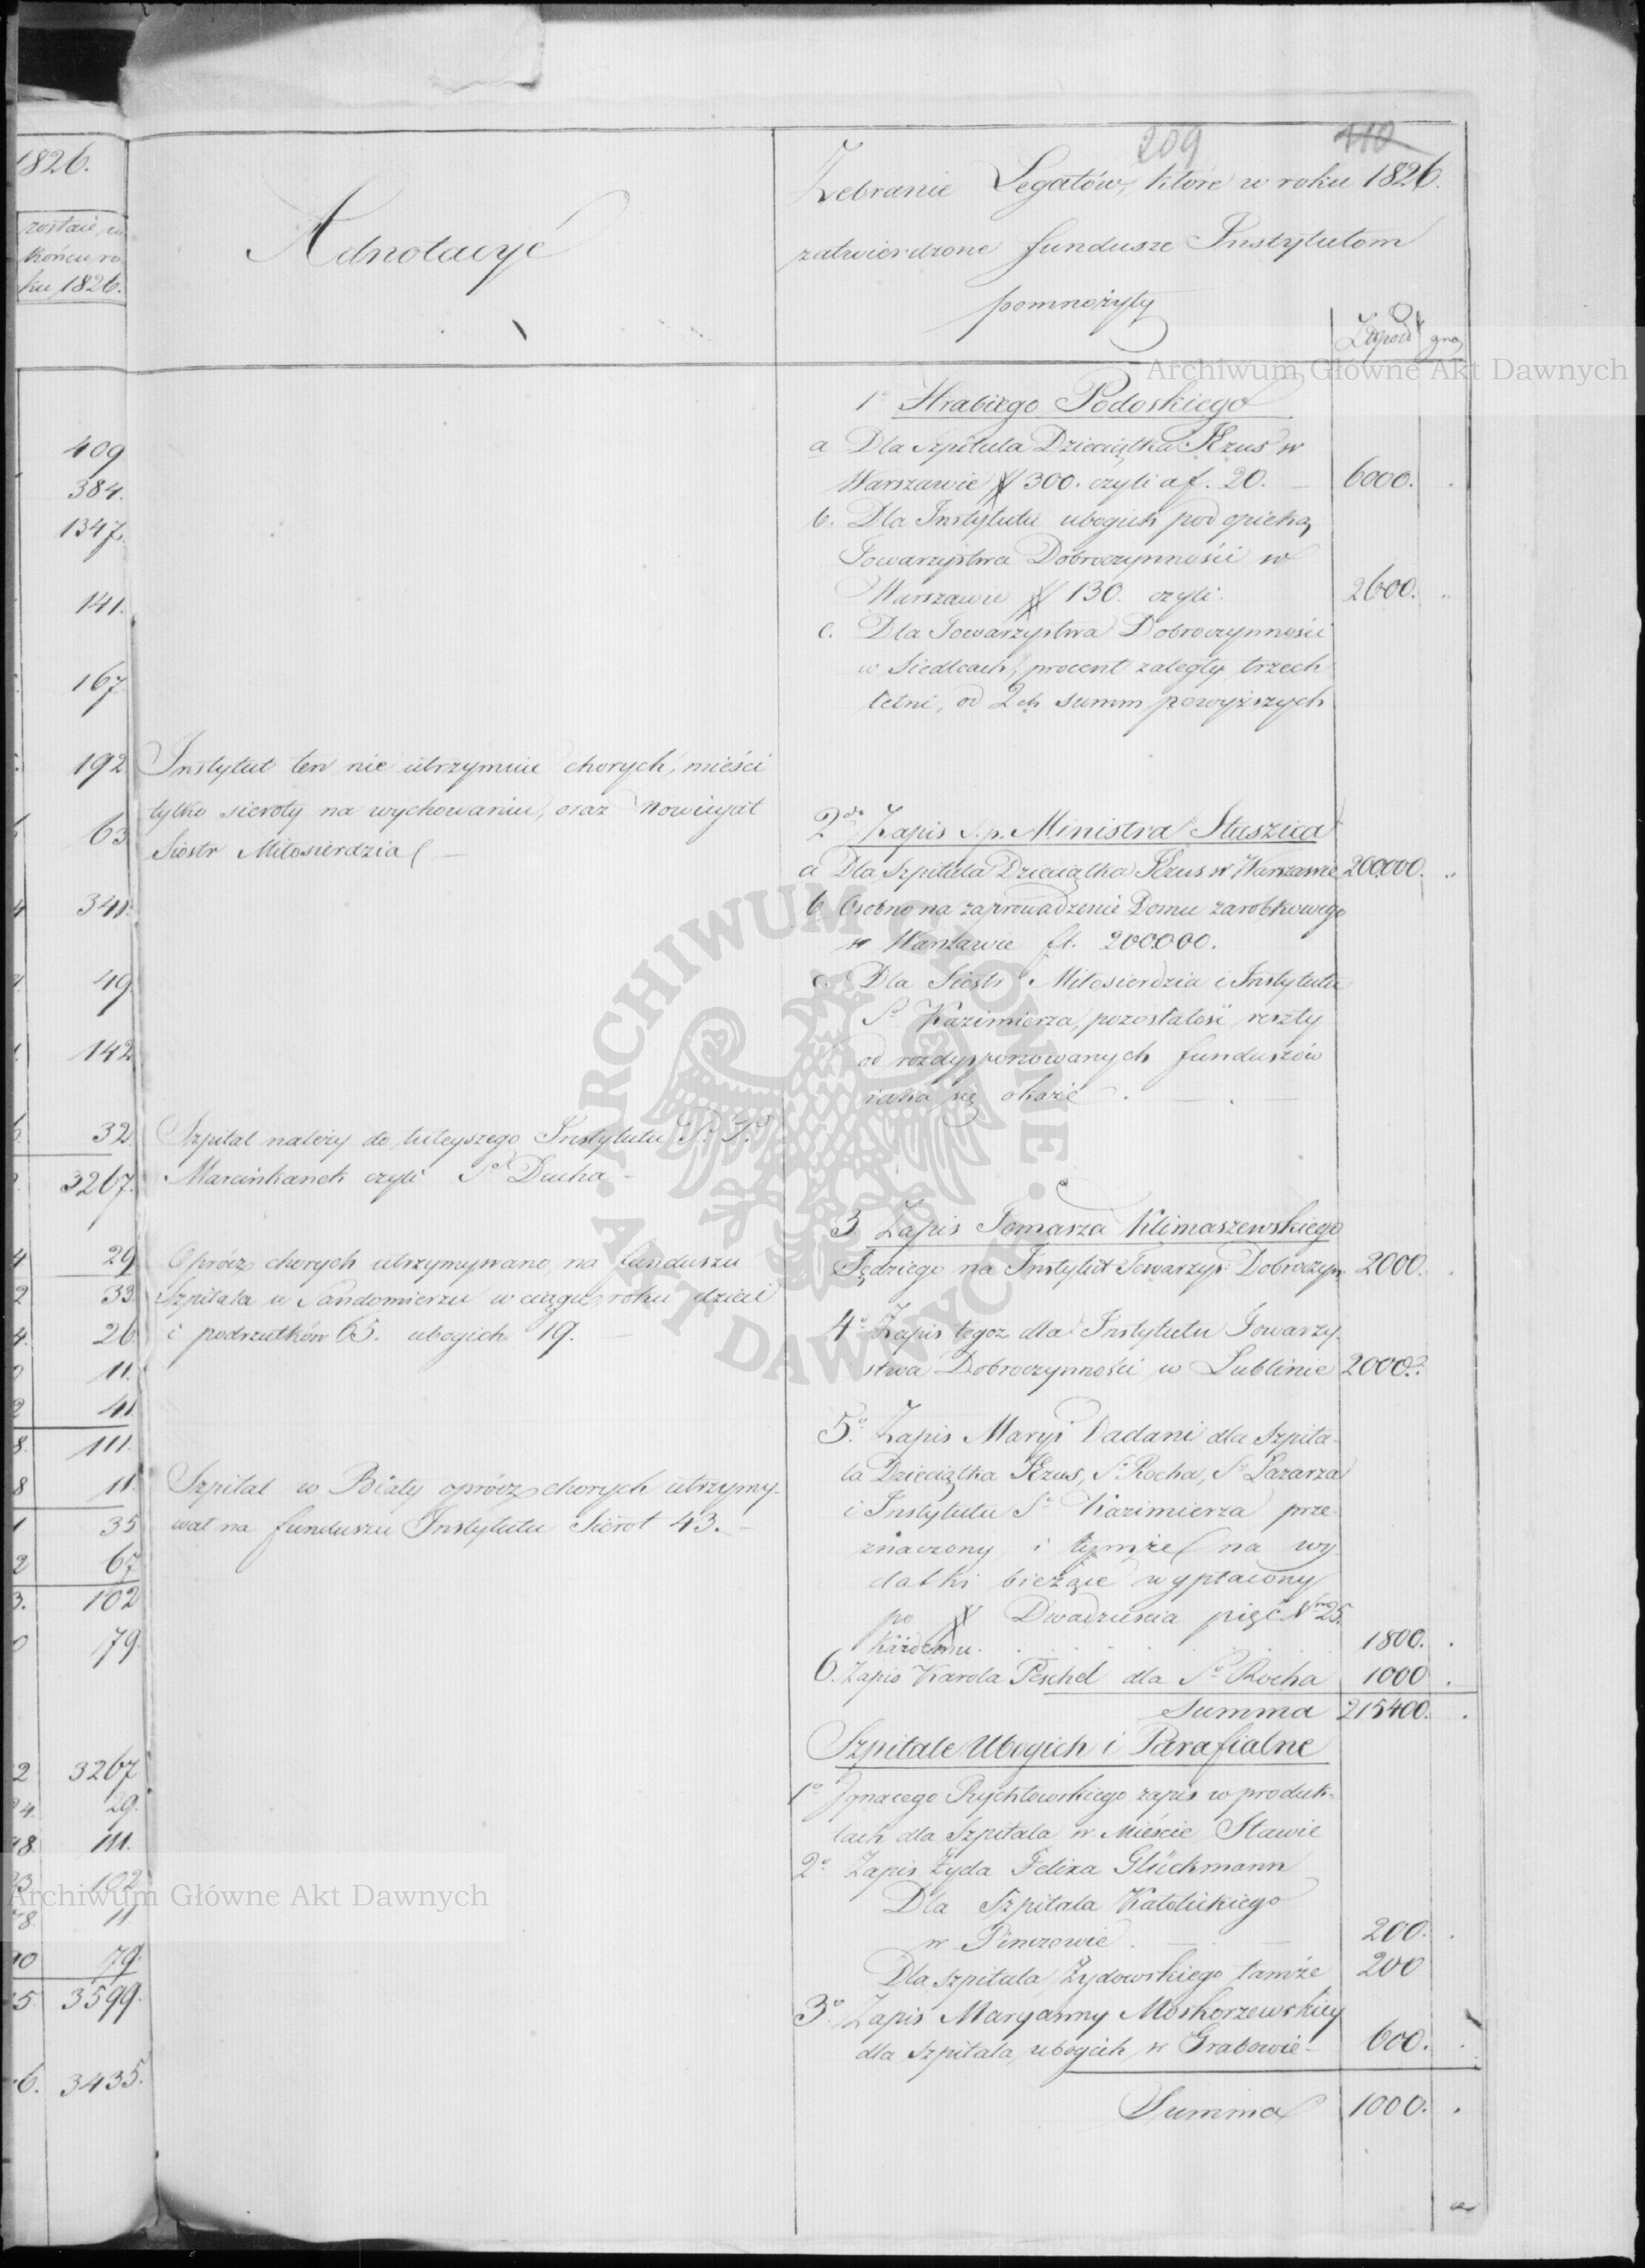 209 110
1826.
zostaie w
końcu ro
ku 1826.
409
384.
1347.
141.
167
192
63
341.
49.
142
32
3267.
29
33
26
11.
41
111.
11.
35
67
102
79.
3267
29.
111.
102
11
79.
3599.
3435.
Adnotacye
Instytut ten nie utrzymuie chorych, mieści
tylko sieroty na wychowaniu, oraz Nowicyat
Siostr Miłosierdzia
Szpital należy do tuteyszego Instytutu P. P.
Marcinkanek czyli Sgo Ducha
Oprócz chorych utrzymywano na funduszu
Szpitala w Sandomierzu w ciągu roku dzieci
i podrzutków 65. ubogich 19.
Szpital w Biały oprócz chorych utrzymy-
wał na funduszu Instytutu Sierot 43.
Zebranie Legatów, ktore w roku 1826.
zatwierdzone fundusze Instytutom
pomnożyły
gro
1o Hrabiego Podoskiego
a Dla Szpitala Dzieciątka Jezus w
Warszawie # 300. czyli a f. 20. 6000.
b. Dla Instytutu ubogich pod opieką
Towarzystwa Dobroczynności w
Warszawie # 130. czyli. 2600.
c. Dla Towarzystwa Dobroczynności
w Siedlcach, procent zaległy trzech
letni, od 2ch summ powyższych
2do Zapis S. p. Ministra Staszica
a Dla Szpitala Dzieciątka Jezus w Warszawie 200000.
b Osobno na zaprowadzenie Domu zarobkowego
w Warszawie fl. 200000.
c. Dla Siostr Miłosierdzia i Instytutu
So Kazimierza, pozostałość reszty
od rozdysponowanych funduszów
iaka się okaże.
3 Zapis Tomasza Klimaszewskiego
Sędziego na Instytut Towarzys: Dobroczyn 2000.
4o Zapis tegoż dla Instytutu Towarzy-
stwa Dobroczynności w Lublinie 2000.
5o. Zapis Maryi Dadani dla Szpita-
la Dzieciątka Jezus, So Rocha, So Łazarza
i Instytutu So Kazimierza prze-
znaczony i tymże na wy-
datki bieżące wypłacony
po # Dwadzieścia pięć Nro 25.
Każdemu. 1800.
6. Zapis Karola Peschel dla So Rocha 1000
Summa 215400.
Szpitale Ubogich i Parafialne
1o Ignacego Rychłowskiego zapis w produk-
tach dla Szpitala w Mieście Stawie
2o Zapis Żyda Felixa Glückmann
Dla Szpitala Katolickiego
w Pinczowie. 200.
Dla Szpitala Żydowskiego tamże 200
3o Zapis Maryanny Moskorzewskiey
dla Szpitala ubogich w Grabowie 600.
Summa 1000.
Archiwum Główne Akt Dawnych
ARCHIWUM GŁÓWNE AKT DAWNYCH
Archiwum Główne Akt Dawnych